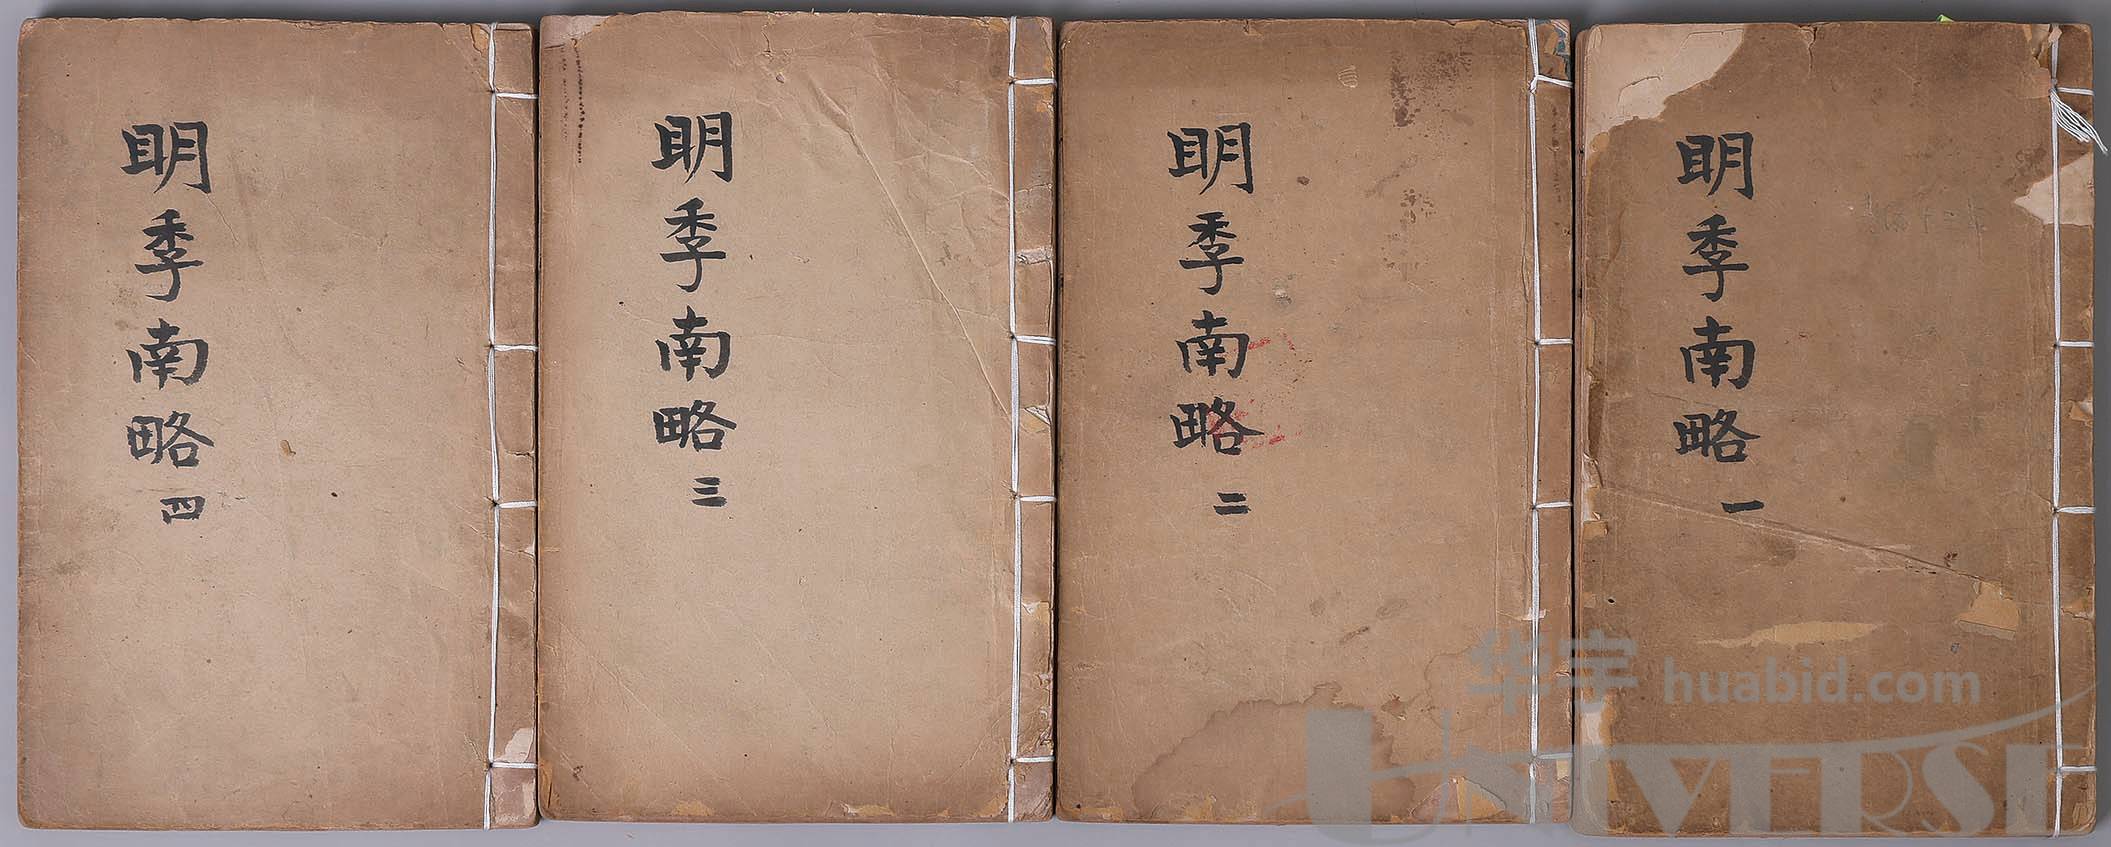 明季南略 一
明季南略 二
明季南略 三
明季南略 四
华宇 huabid.com
UNIVERSE